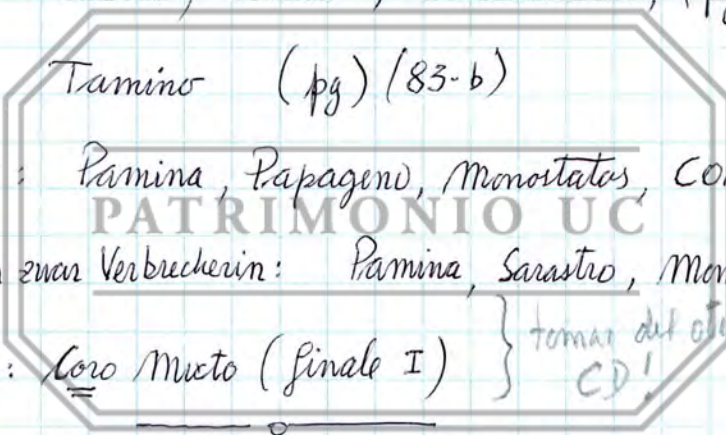 Tamino (pg) (83-b)
: Pamina, Papageno, Monostatos, CO
PATRIMONIO UC
zwar Verbrecherin: Pamina, Sarastro, Mon
: Coro Mixto (finale I) } tomar del
CD!